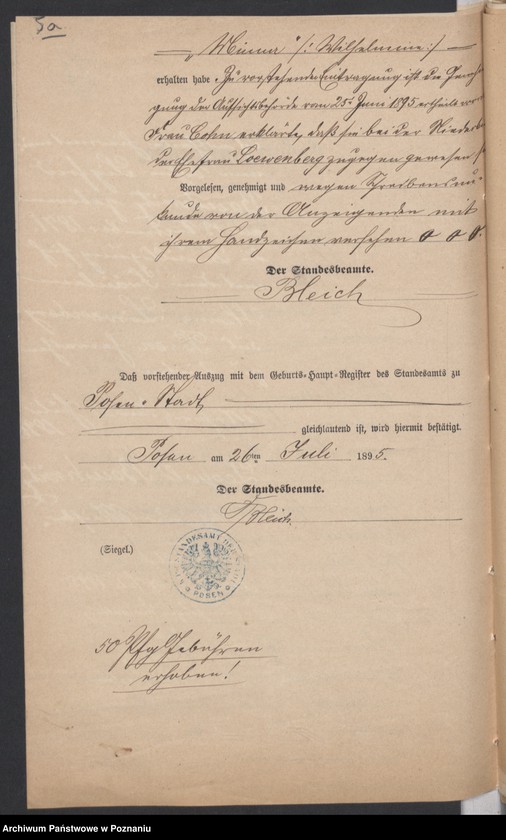 5a
„Minna“ /: Wilhelmine :/
erhalten habe. Zu vorstehender Eintragung ist die Geneh-
gung der Aufsichtsbehörde vom 25ᵗ Juni 1895 ertheilt
Frau Cohn erklärte, daß sie bei der Niederk
der Ehefrau Loewenberg zugegen gewesen
Vorgelesen, genehmigt und wegen Schreibensun-
kunde von der Anzeigenden mit
ihrem Handzeichen versehen o o o.
Der Standesbeamte.
Bleich
Daß vorstehender Auszug mit dem Geburts-Haupt-Register des Standesamts zu
Posen-Stadt
gleichlautend ist, wird hiermit bestätigt.
Posen am 26ten Juli 1895.
Der Standesbeamte.
Bleich
(Siegel.)
STANDESAMT
POSEN
50 Pfg Gebühren
erhoben!
Archiwum Państwowe w Poznaniu